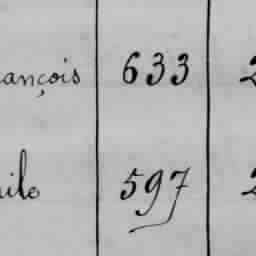 ançois 633 2
ile 597 2